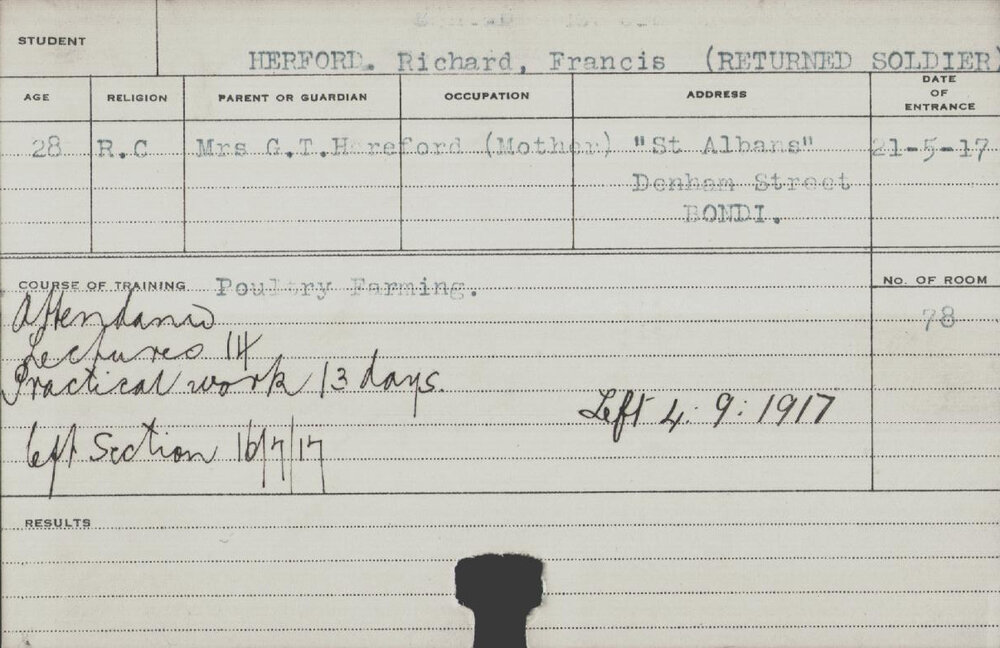 STUDENT
HERFORD. Richard, Francis (RETURNED SOLDIER)
AGE RELIGION PARENT OR GUARDIAN OCCUPATION ADDRESS DATE OF ENTRANCE
28 R.C Mrs G.T.Hereford (Mother) "St Albans" 21-5-17
Denham Street
BONDI.
COURSE OF TRAINING Poultry Farming. No. OF ROOM
Attendance 78
Lectures 14
Practical work 13 days.
Left 4.9:1917
left Section 16/7/17
RESULTS